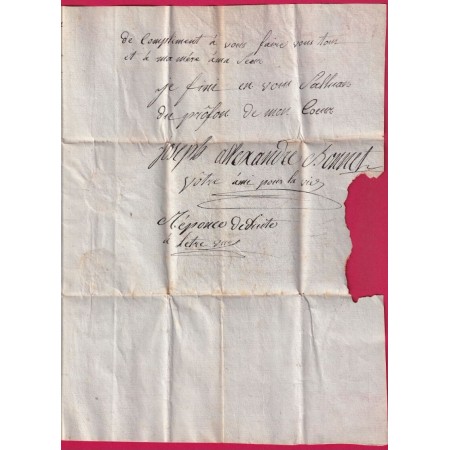 de Compliment à vous faire vous tous
et à ma mère à ma Seur
je fine en vous Salluan
du profon de mon Coeur
joseph allexandre Bonnet
vôtre ami pour la vie
Réponce de Suite
a letre vue